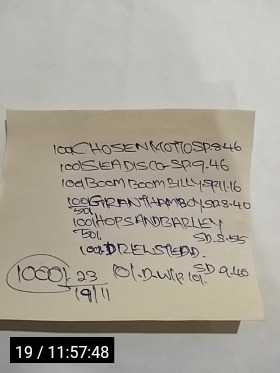 100/CHOSENMOTTOSP.8.46
100/SEADISCO-SP.9.46
100/BOOMBOOMBILLYSP.11.16
100/GRANTHAMBOYSP.8.40
50/.
100/HOPSANDBARLEY
50/. SD.8.55
100/DREWSTEAD.
SD 9.40
1000/-23
19/11
19 / 11:57:48